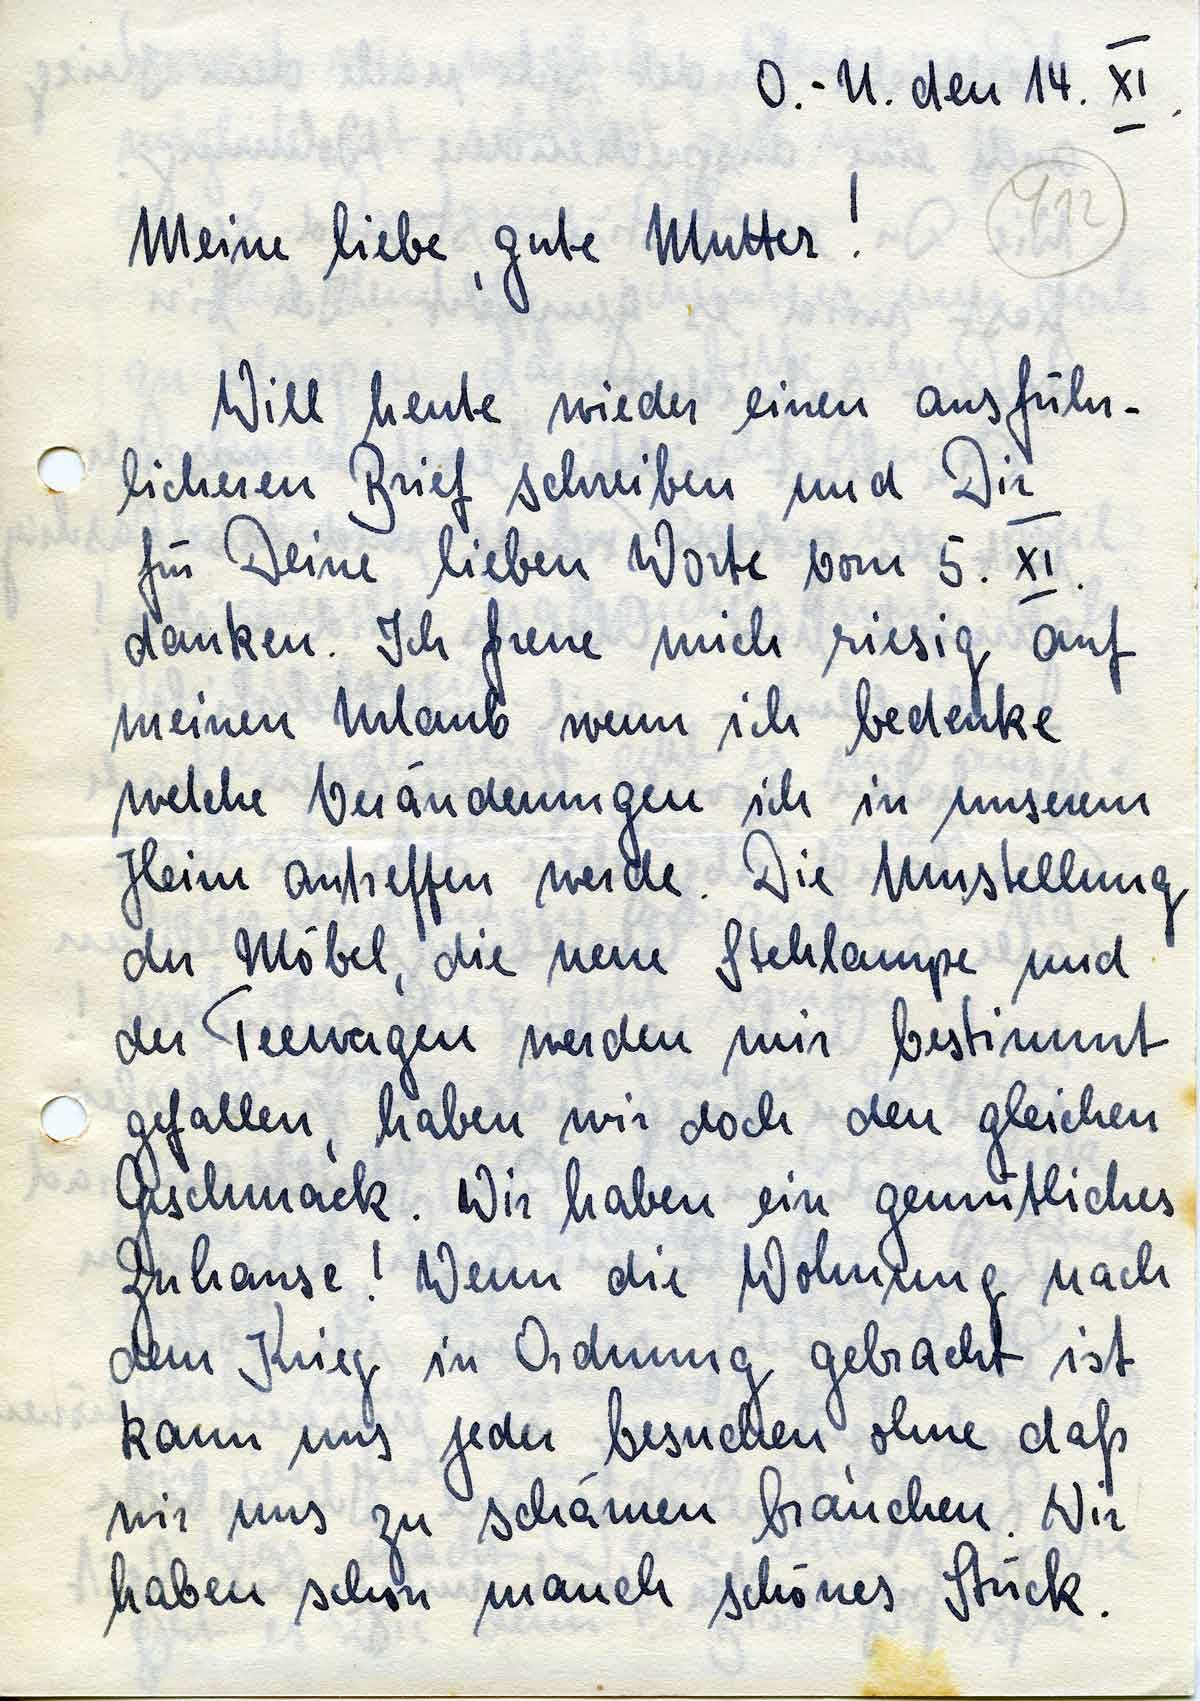 O.-U. den 14. XI.
412
Meine liebe, gute Mutter!
Will heute wieder einen ausführ-
licheren Brief schreiben und Dir
für Deine lieben Worte vom 5. XI.
danken. Ich freue mich riesig auf
meinen Urlaub wenn ich bedenke
welche Veränderungen ich in unserem
Heim antreffen werde. Die Umstellung
der Möbel, die neue Stehlampe und
der Teewagen werden mir bestimmt
gefallen, haben wir doch den gleichen
Geschmack. Wir haben ein gemütliches
Zuhause! Wenn die Wohnung nach
dem Krieg in Ordnung gebracht ist
kann uns jeder besuchen, ohne daß
wir uns zu schämen bräuchen. Wir
haben schon manch schönes Stück.